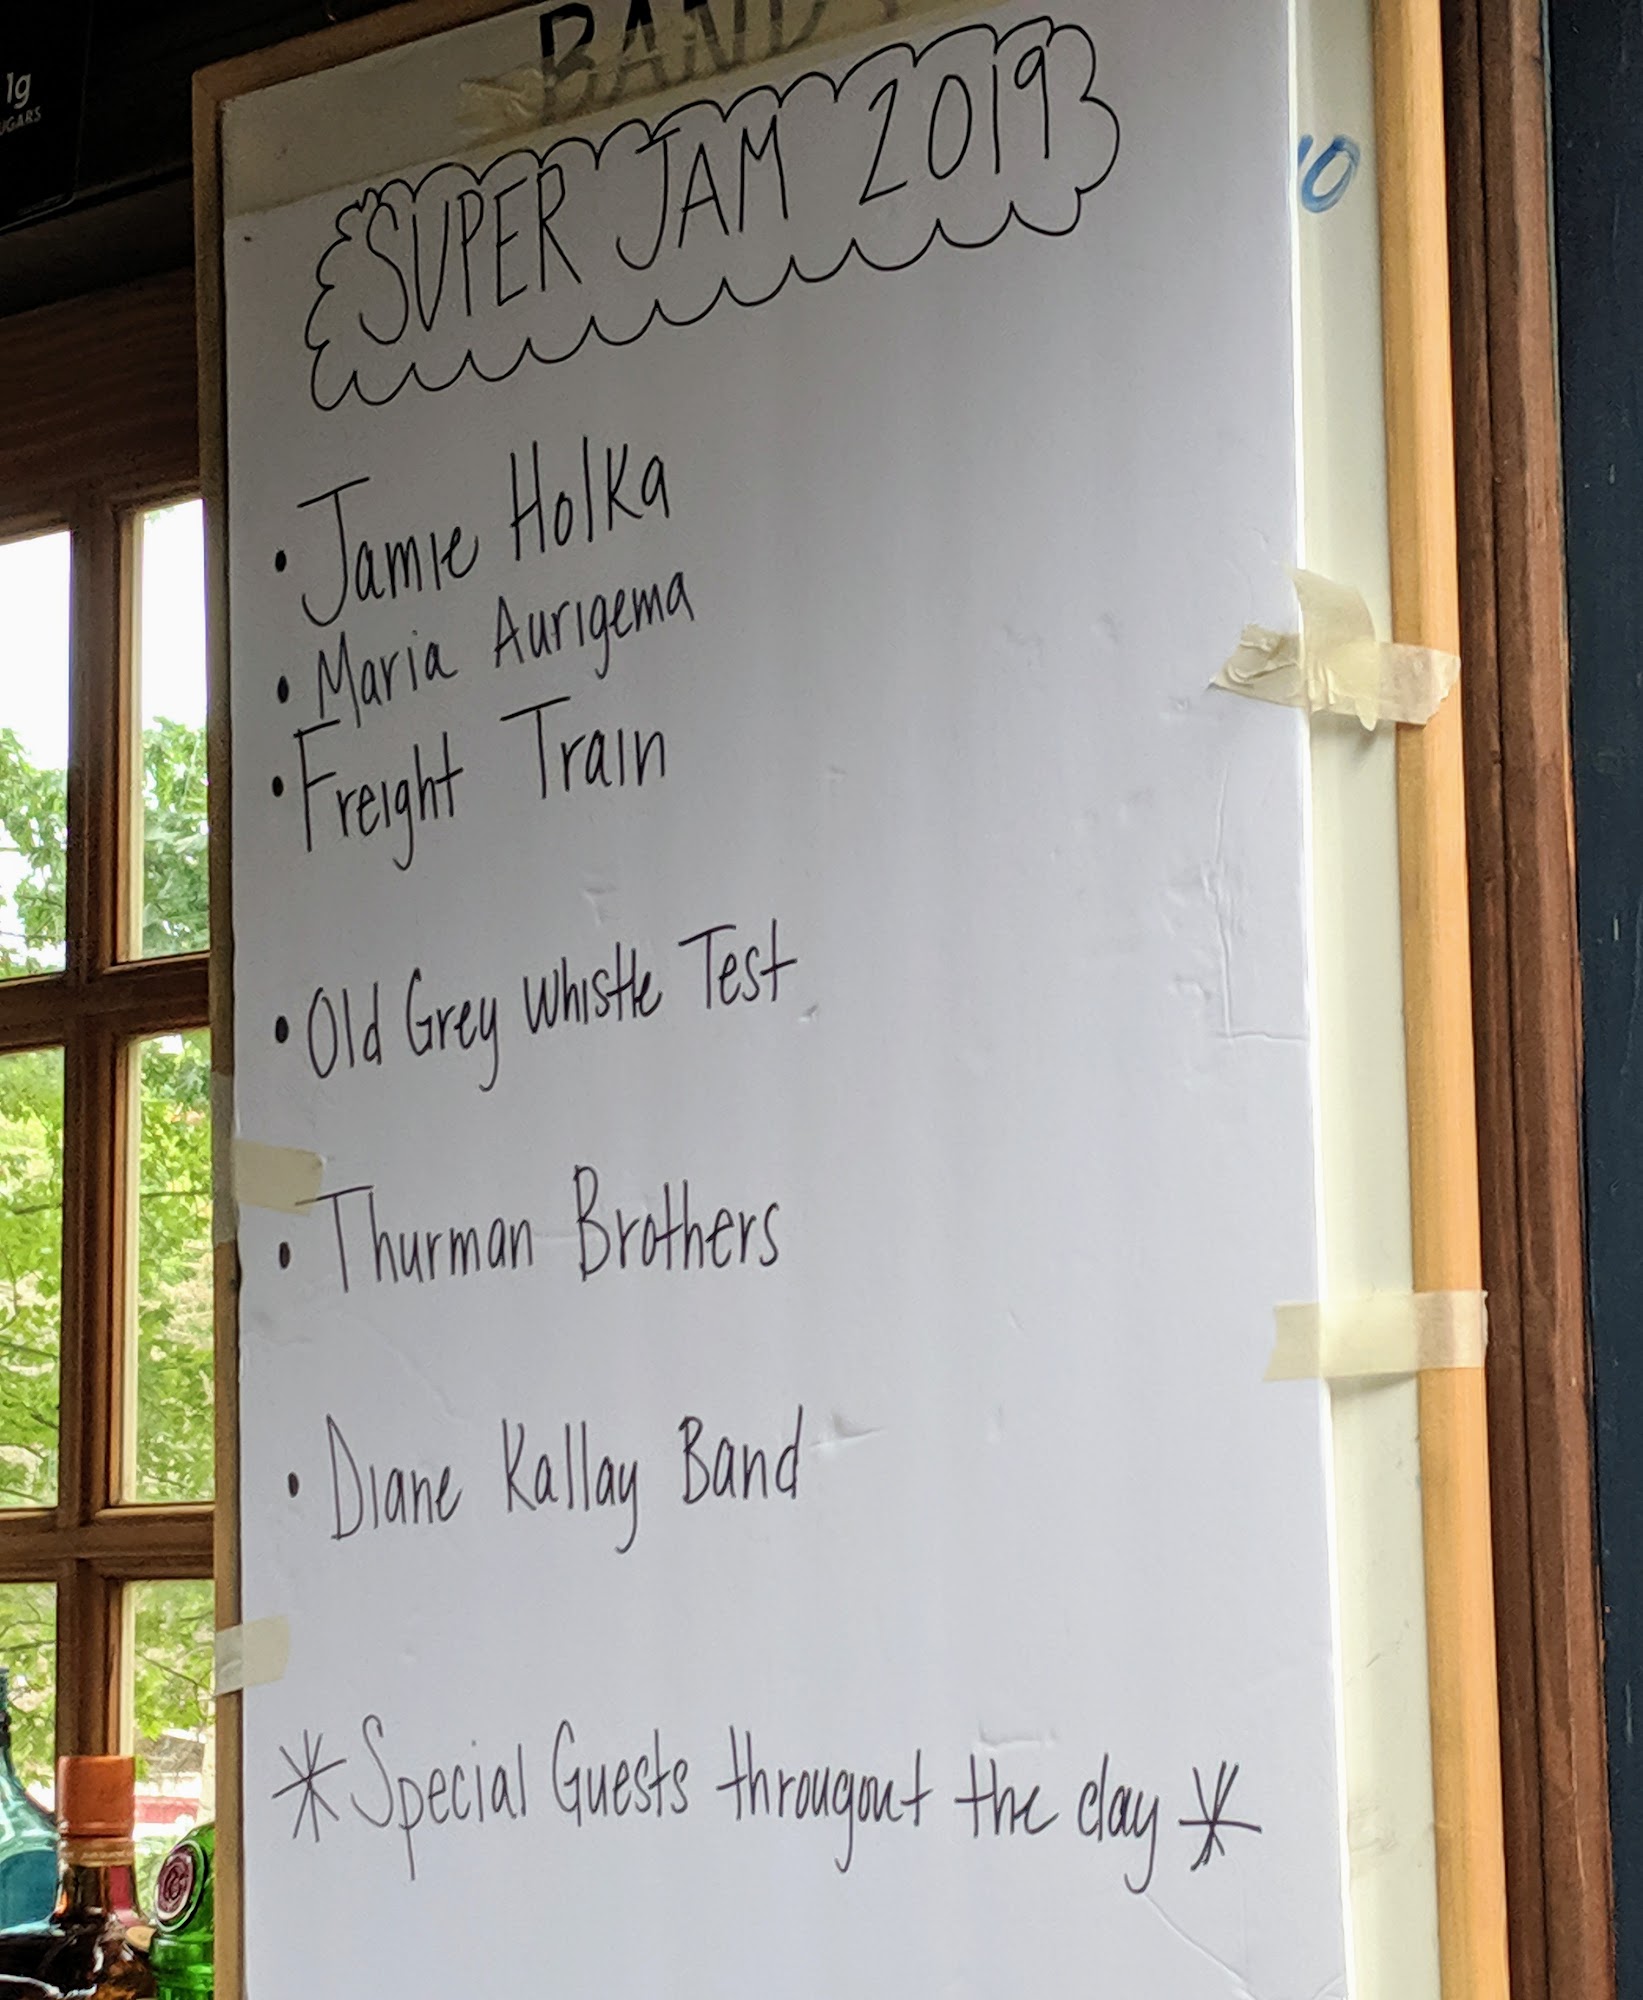 1g
UGARS
BAND
SUPER JAM 2019
• Jamie Holka
• Maria Aurigema
• Freight Train
• Old Grey Whistle Test
• Thurman Brothers
• Diane Kallay Band
* Special Guests througout the day *
10